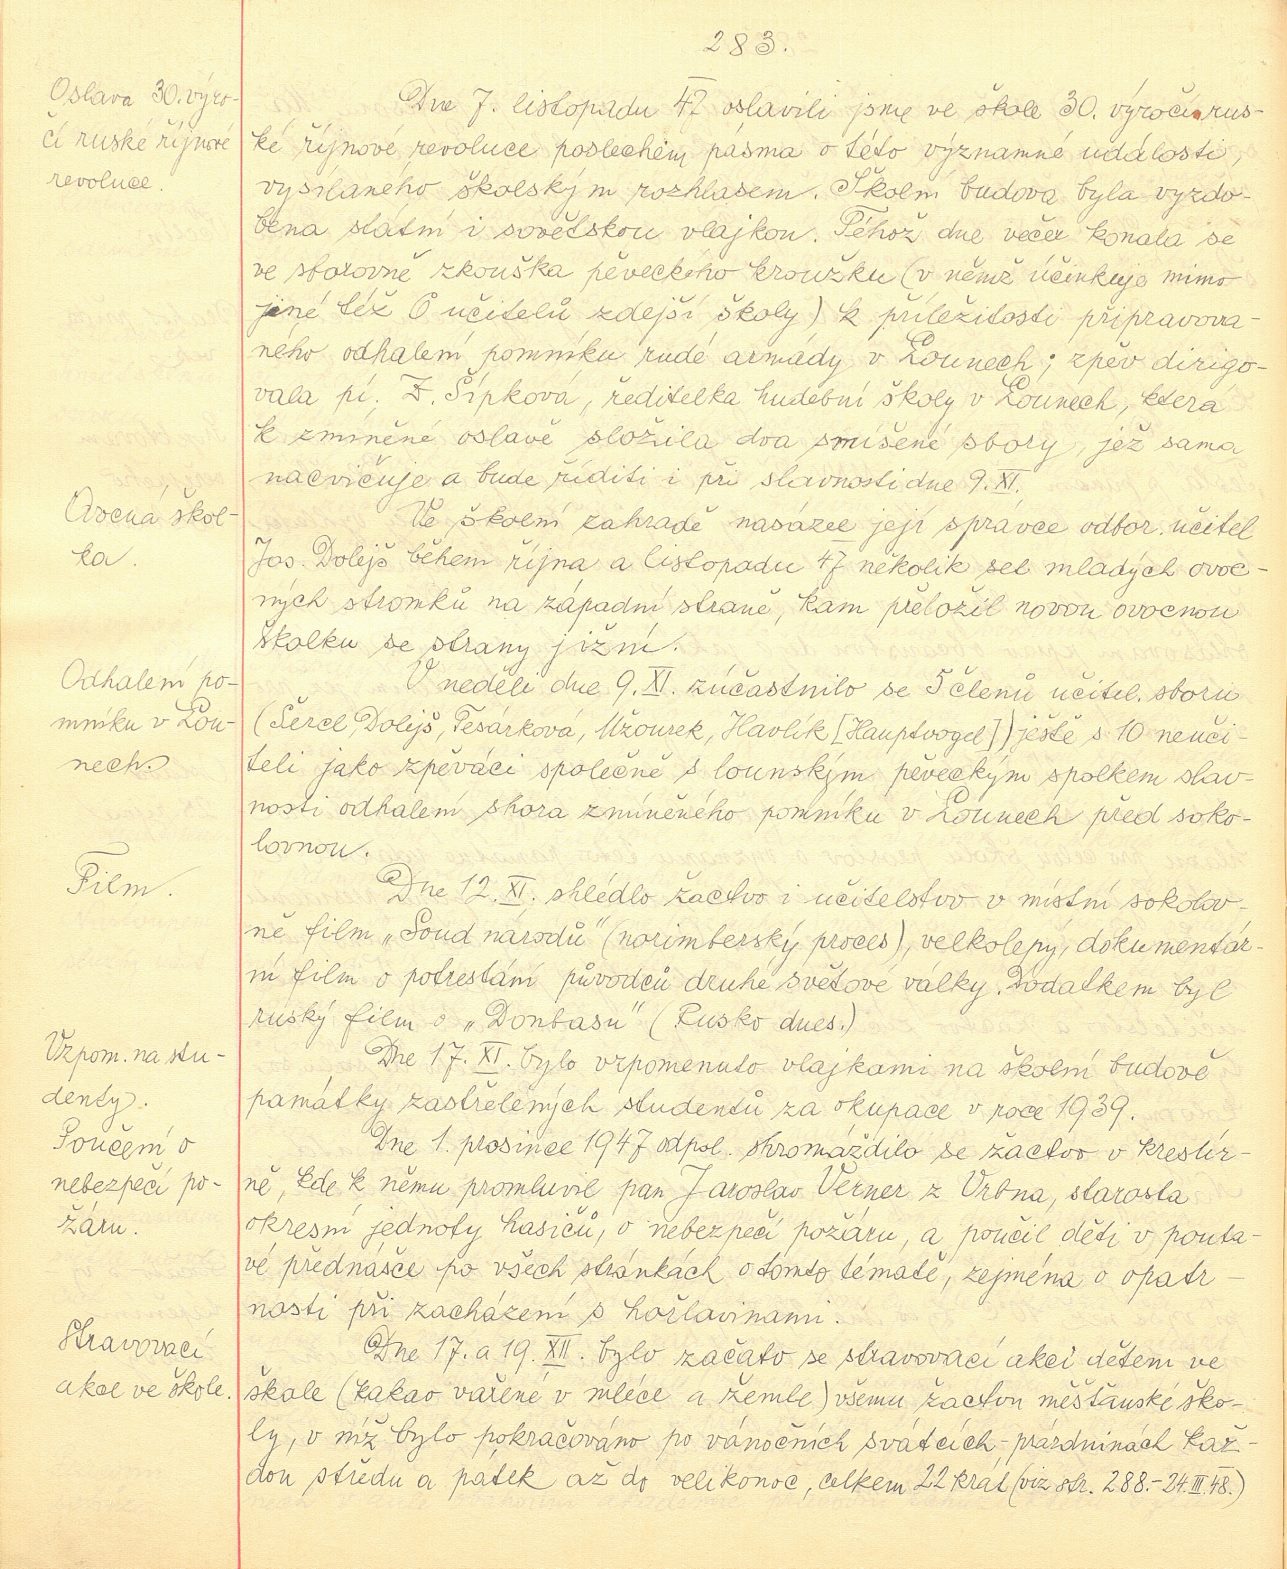 283.
Oslava 30. výro-
čí ruské říjnové
revoluce.
Dne 7. listopadu 47 oslavili jsme ve škole 30. výročí rus-
ké říjnové revoluce poslechem pásma o této významné události,
vysílaného školským rozhlasem. Školní budova byla vyzdo-
bena státní i sovětskou vlajkou. Téhož dne večer konala se
ve sborovně zkouška pěveckého kroužku (v němž účinkuje mimo
jiné též 6 učitelů zdejší školy) k příležitosti připravova-
ného odhalení pomníku rudé armády v Lounech; zpěv dirigo-
vala pí. Z. Šípková, ředitelka hudební školy v Lounech, která
k zmíněné oslavě složila dva smíšené sbory, jež sama
nacvičuje a bude říditi i při slavnosti dne 9. XI.
Ovocná škol-
ka.
Ve školní zahradě nasázel její správce odbor. učitel
Jos. Dolejš během října a listopadu 47 několik set mladých ovoc-
ných stromků na západní straně, kam přeložil novou ovocnou
školku se strany jižní.
Odhalení po-
mníku v Lou-
nech.
V neděli dne 9. XI. zúčastnilo se 5 členů učitel. sboru
(Šercl, Dolejš, Tesárková, Mžourek, Havlík [Hauptvogel]) ještě s 10 neuči-
teli jako zpěváci společně s lounským pěveckým spolkem slav-
nosti odhalení shora zmíněného pomníku v Lounech před soko-
lovnou.
Film.
Dne 12. XI. shlédlo žactvo i učitelstvo v místní sokolov-
ně film „Soud národů“ (norimberský proces), velkolepý, dokumentár-
ní film o potrestání původců druhé světové války. Dodatkem byl
ruský film o „Donbasu“ (Rusko dnes.)
Vzpom. na stu-
denty.
Dne 17. XI. bylo vzpomenuto vlajkami na školní budově
památky zastřelených studentů za okupace v roce 1939.
Poučení o
nebezpečí po-
žáru.
Dne 1. prosince 1947 odpol. shromáždilo se žactvo v kreslír-
ně, kde k němu promluvil pan Jaroslav Verner z Vrbna, starosta
okresní jednoty hasičů, o nebezpečí požáru, a poučil děti v pouta-
vé přednášce po všech stránkách o tomto tématě, zejména o opatr-
nosti při zacházení s hořlavinami.
Stravovací
akce ve škole.
Dne 17. a 19. XII. bylo začato se stravovací akcí dětem ve
škole (kakao vařené v mléce a žemle) všemu žactvu měšťanské ško-
ly, v níž bylo pokračováno po vánočních svátcích - prázdninách kaž-
dou středu a pátek až do velikonoc, celkem 22 krát (viz str. 288.- 24.III.48.)